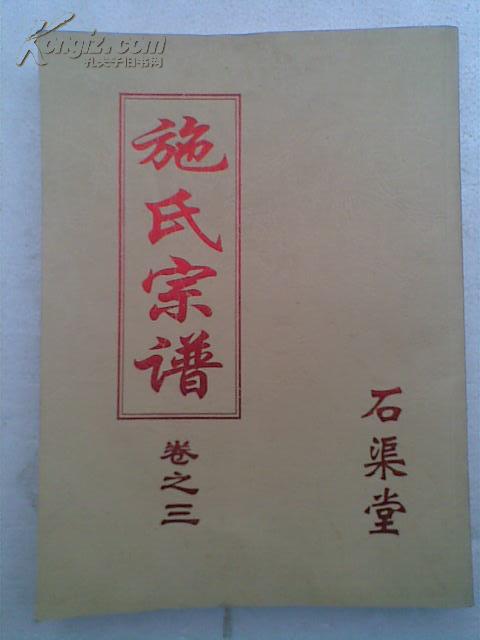 Kongfz.com
孔夫子旧书网
施氏宗谱
卷之三
石渠堂